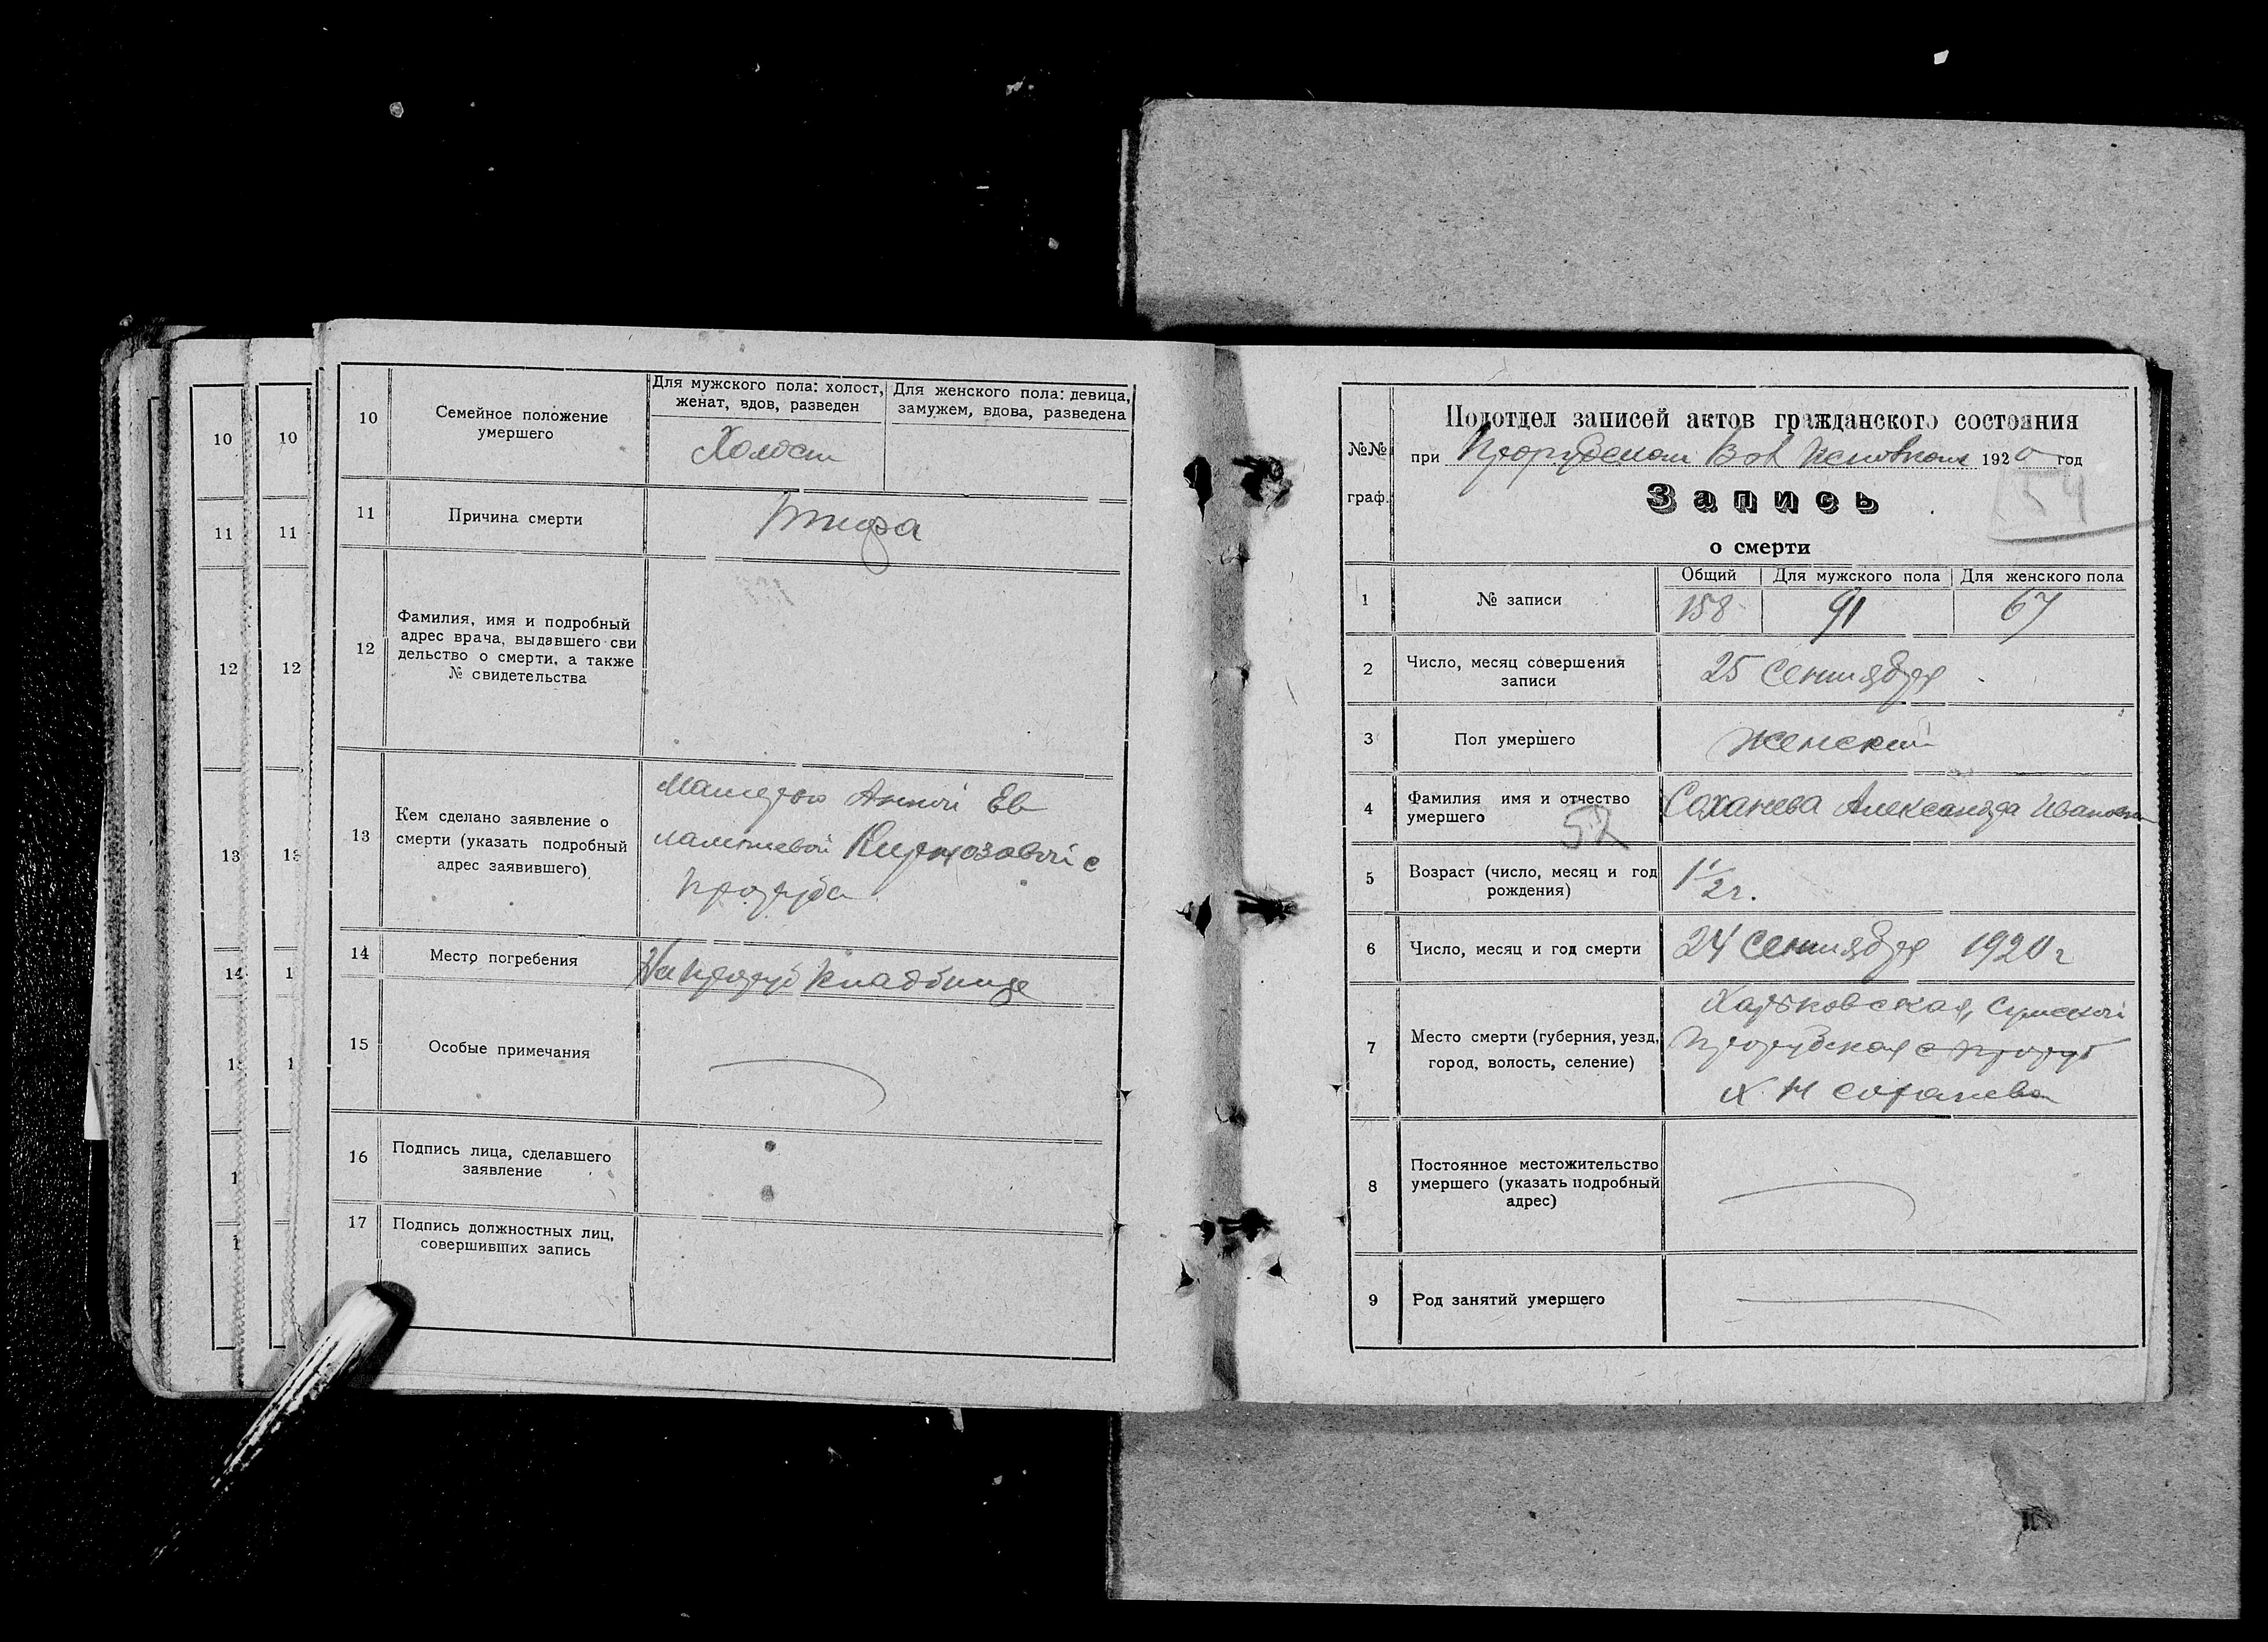 10
11
12
13
14
1
1
1
10
11
12
13
1
1
10
Семейное положение
умершего
Для мужского пола: холост,
женат, вдов, разведен
Для женского пола: девица,
замужем, вдова, разведена
Холост
11
Причина смерти
тифа
12
Фамилия, имя и подробный
адрес врача, выдавшего сви
дельство о смерти, а также
№ свидетельства
13
Кем сделано заявление о
смерти (указать подробный
адрес заявившего)
Матерью Анной Ев
с
14
Место погребения
На Кладбище
15
Особые примечания
16
Подпись лица, сделавшего
заявление
17
Подпись должностных лиц,
совершивших запись
№№
граф.
Подотдел записей актов гражданского состояния
при Прорубском Вол Исполкоме 1920 год
154
Запись
о смерти
1
№ записи
Общий
Для мужского пола
Для женского пола
158
91
67
2
Число, месяц совершения
записи
25 Сентября
3
Пол умершего
женский
4
Фамилия имя и отчество
умершего
52
Саханева Александра Ивановна
5
Возраст (число, месяц и год
рождения)
1 1/2 г.
6
Число, месяц и год смерти
24 Сентября 1920 г
7
Место смерти (губерния, уезд,
город, волость, селение)
Харьковская, Сумской
Прорубская с Проруб
Х.
8
Постоянное местожительство
умершего (указать подробный
адрес)
9
Род занятий умершего